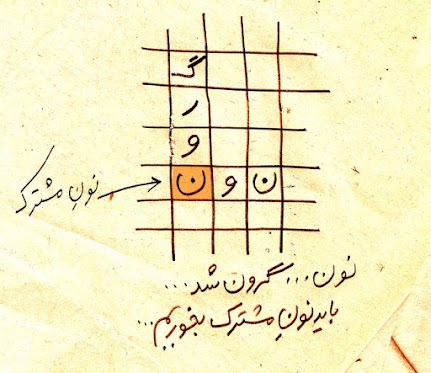 گ
ر
و
ن و ن
نونِ مشترک
نون... گرون شد...
باید نونِ مشترک بخوریم...